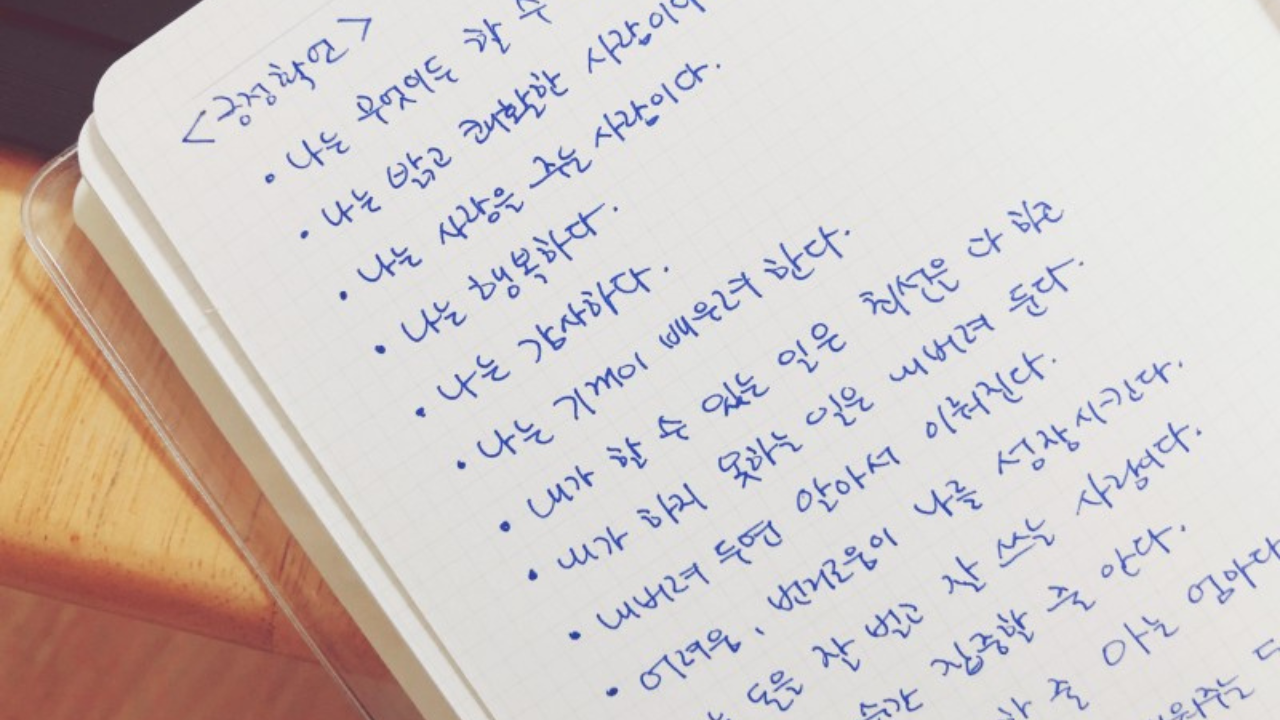 <긍정확언>
• 나는 무엇이든 할 수
• 나는 밝고 쾌활한 사람이다
• 나는 사랑을 주는 사람이다.
• 나는 행복하다.
• 나는 감사하다.
• 나는 기꺼이 배우려 한다.
• 내가 할 수 있는 일은 최선은 다 하고
• 내가 하지 못하는 일은 내버려 둔다.
• 내버려 두면 알아서 이뤄진다.
• 어려움, 번거로움이 나를 성장시킨다.
는 돈을 잘 벌고 잘 쓰는 사람이다.
순간 집중할 줄 안다.
할 줄 아는 엄마다